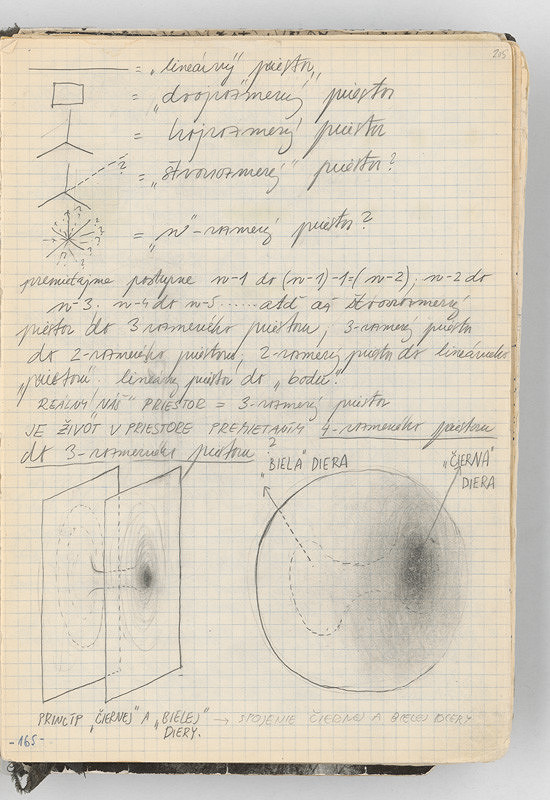 205
= „lineárny" priestor„
= „dvojrozmerný priestor
= trojrozmerný priestor
?
= „štvorrozmerný" priestor?
? ? ? ? ? ? ?
= „n"-rozmerný priestor?
premietajme postupne n-1 do (n-1)-1-(n-2), n-2 do
n-3. n-4 do n-5 ...... atď až štvorrozmerný
priestor do 3 rozmerného priestoru, 3-rozmerný priestor
do 2-rozmerného priestoru, 2-rozmerný priestor do lineárneho
„priestoru". lineárny priestor do „bodu".
REÁLNY „NÁŠ" PRIESTOR = 3-rozmerný priestor
JE ŽIVOT V PRIESTORE PREMIETANÍM 4-rozmerného priestoru
do 3-rozmerného priestoru?
„BIELA" DIERA
„ČIERNA" DIERA
PRINCÍP „ČIERNEJ" A „BIELEJ" → SPOJENIE ČIERNEJ A BIELEJ DIERY
DIERY.
-165-